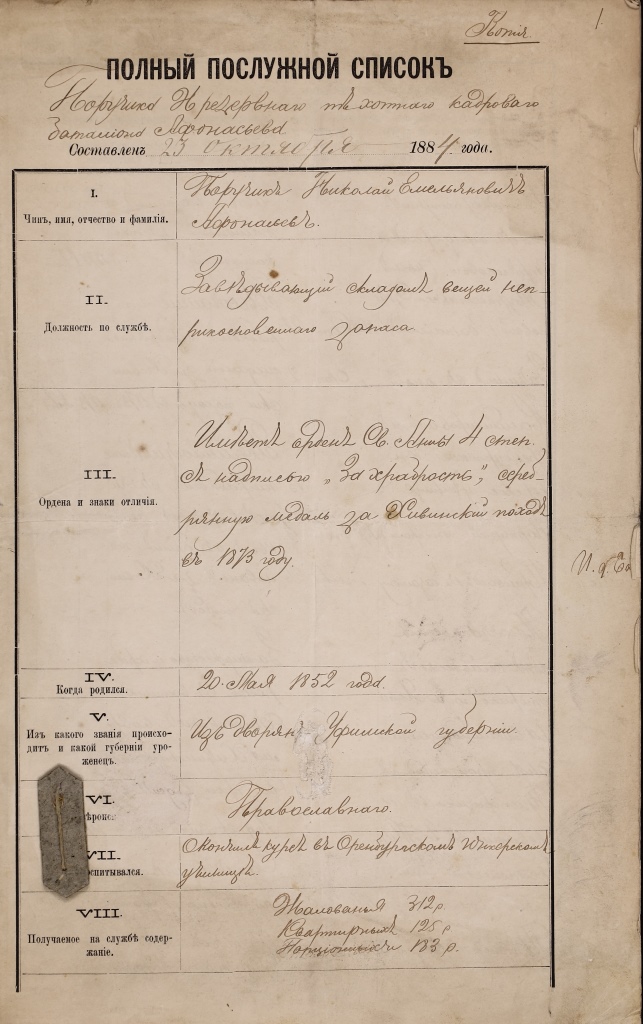 Копія
1.
ПОЛНЫЙ ПОСЛУЖНОЙ СПИСОКЪ
Поручика Резервнаго пѣхотнаго кадроваго
баталіона Афонасьева
Составленъ 23 октября 1884 года.
I.
Чинъ, имя, отчество и фамилія.
Поручикъ Николай Емельяновичъ
Афонасьевъ.
II.
Должность по службѣ.
Завѣдывающій складомъ вещей неп-
рикосновеннаго запаса
III.
Ордена и знаки отличія.
Имѣетъ орденъ Св. Анны 4 степ.
съ надписью „За храбрость“, сереб-
рянную медаль за Хивинскій походъ
въ 1873 году.
И. д.
IV.
Когда родился.
20. Мая 1852 года.
V.
Изъ какого званія происхо-
дитъ и какой губерніи уро-
женецъ.
Изъ Дворянъ Уфимской губерніи.
VI.
Православнаго.
VII.
спитывался.
Окончилъ курсъ въ Оренбургскомъ Юнкерскомъ
училищѣ.
VIII.
Получаемое на службѣ содер-
жаніе.
Жалованья 312 р.
Квартирныхъ 125 р
183 р.